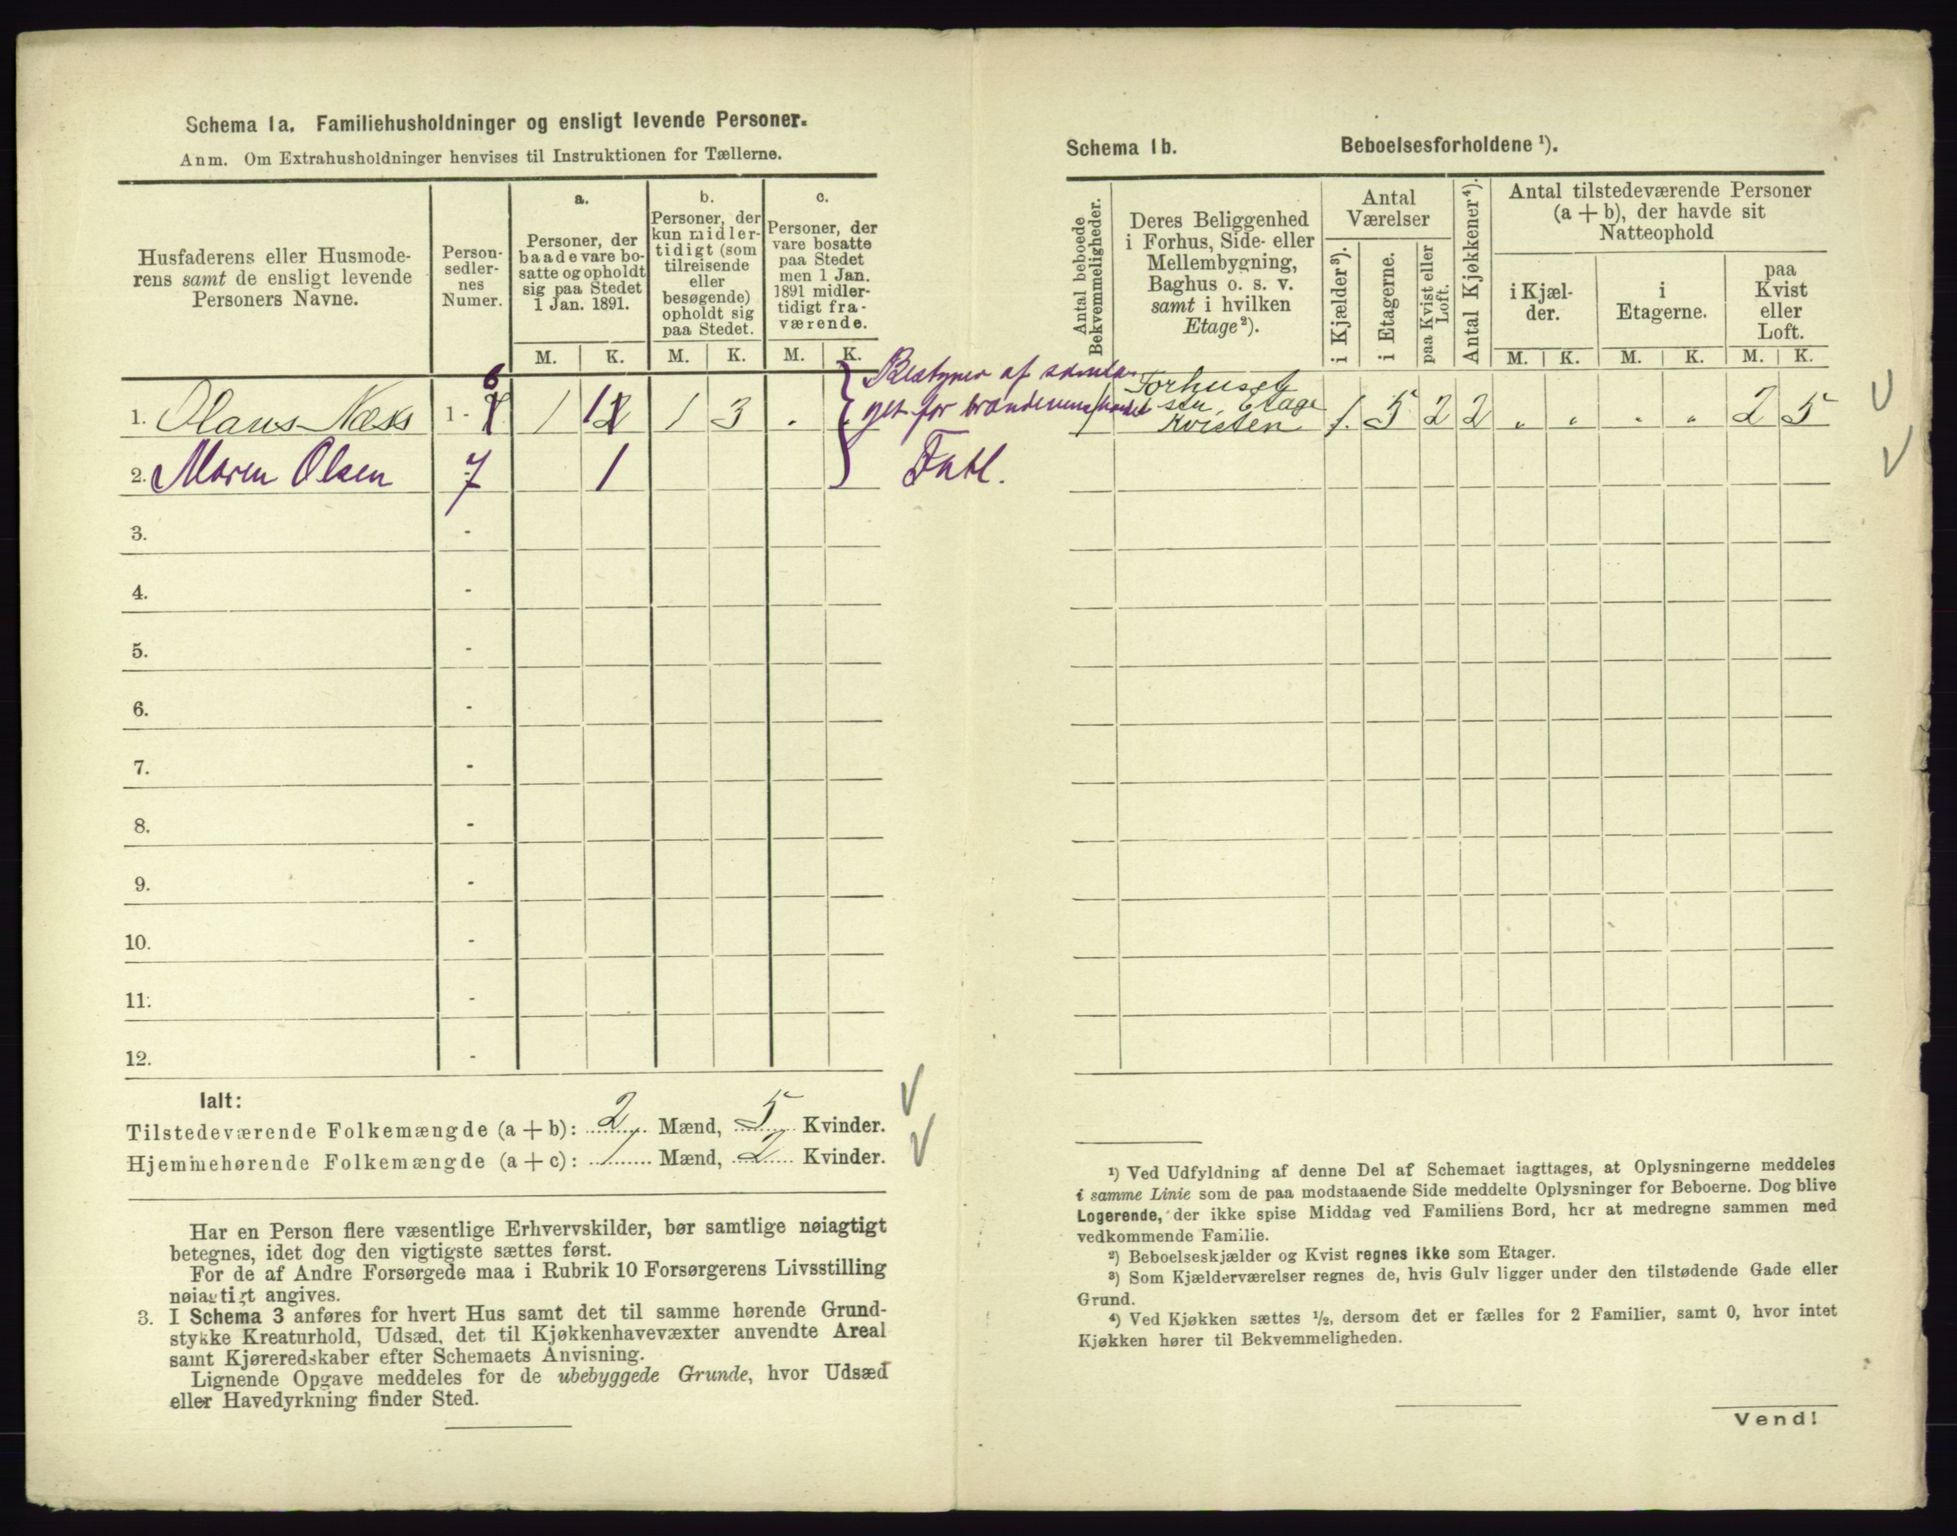 Schema 1a. Familiehusholdninger og ensligt levende Personer.
Anm. Om Extrahusholdninger henvises til Instruktionen for Tællerne.
Husfaderens eller Husmode-
rens samt de ensligt levende
Personers Navne.
Person-
sedler-
nes
Numer.
a.
Personer, der
baade vare bo-
satte og opholdt
sig paa Stedet
1 Jan. 1891.
b.
Personer, der
kun midler-
tidigt (som
tilreisende
eller
besøgende)
opholdt sig
paa Stedet.
c.
Personer, der
vare bosatte
paa Stedet
men 1 Jan.
1891 midler-
tidigt fra-
værende.
M. K. M. K. M. K.
1. Olaus Næss 1 - 6 1 1 1 3 .
2. Maren Olsen 7 1
Bestyrer af
for
3. -
4. -
5. -
6. -
7. -
8. -
9. -
10. -
11. -
12. -
Ialt:
Tilstedeværende Folkemængde (a + b): 2 Mænd, 5 Kvinder.
Hjemmehørende Folkemængde (a + c): 1 Mænd, 2 Kvinder.
Har en Person flere væsentlige Erhvervskilder, bør samtlige nøiagtigt
betegnes, idet dog den vigtigste sættes først.
For de af Andre Forsørgede maa i Rubrik 10 Forsørgerens Livsstilling
nøiagtigt angives.
3. I Schema 3 anføres for hvert Hus samt det til samme hørende Grund-
stykke Kreaturhold, Udsæd, det til Kjøkkenhavevæxter anvendte Areal
samt Kjøreredskaber efter Schemaets Anvisning.
Lignende Opgave meddeles for de ubebyggede Grunde, hvor Udsæd
eller Havedyrkning finder Sted.
Schema 1b. Beboelsesforholdene ¹).
Antal beboede
Bekvemmeligheder.
Deres Beliggenhed
i Forhus, Side- eller
Mellembygning,
Baghus o. s. v.
samt i hvilken
Etage²).
Antal
Værelser
i Kjælder³).
i Etagerne.
paa Kvist eller
Loft.
Antal Kjøkkener⁴).
Antal tilstedeværende Personer
(a + b), der havde sit
Natteophold
i Kjæl-
der.
i
Etagerne.
paa
Kvist
eller
Loft.
M. K. M. K. M. K.
Forhuset
Etage
Kvisten 1. 5 2 2 „ „ „ „ 2 5
¹) Ved Udfyldning af denne Del af Schemaet iagttages, at Oplysningerne meddeles
i samme Linie som de paa modstaaende Side meddelte Oplysninger for Beboerne. Dog blive
Logerende, der ikke spise Middag ved Familiens Bord, her at medregne sammen med
vedkommende Familie.
²) Beboelseskjælder og Kvist regnes ikke som Etager.
³) Som Kjælderværelser regnes de, hvis Gulv ligger under den tilstødende Gade eller
Grund.
⁴) Ved Kjøkken sættes ½, dersom det er fælles for 2 Familier, samt 0, hvor intet
Kjøkken hører til Bekvemmeligheden.
Vend!